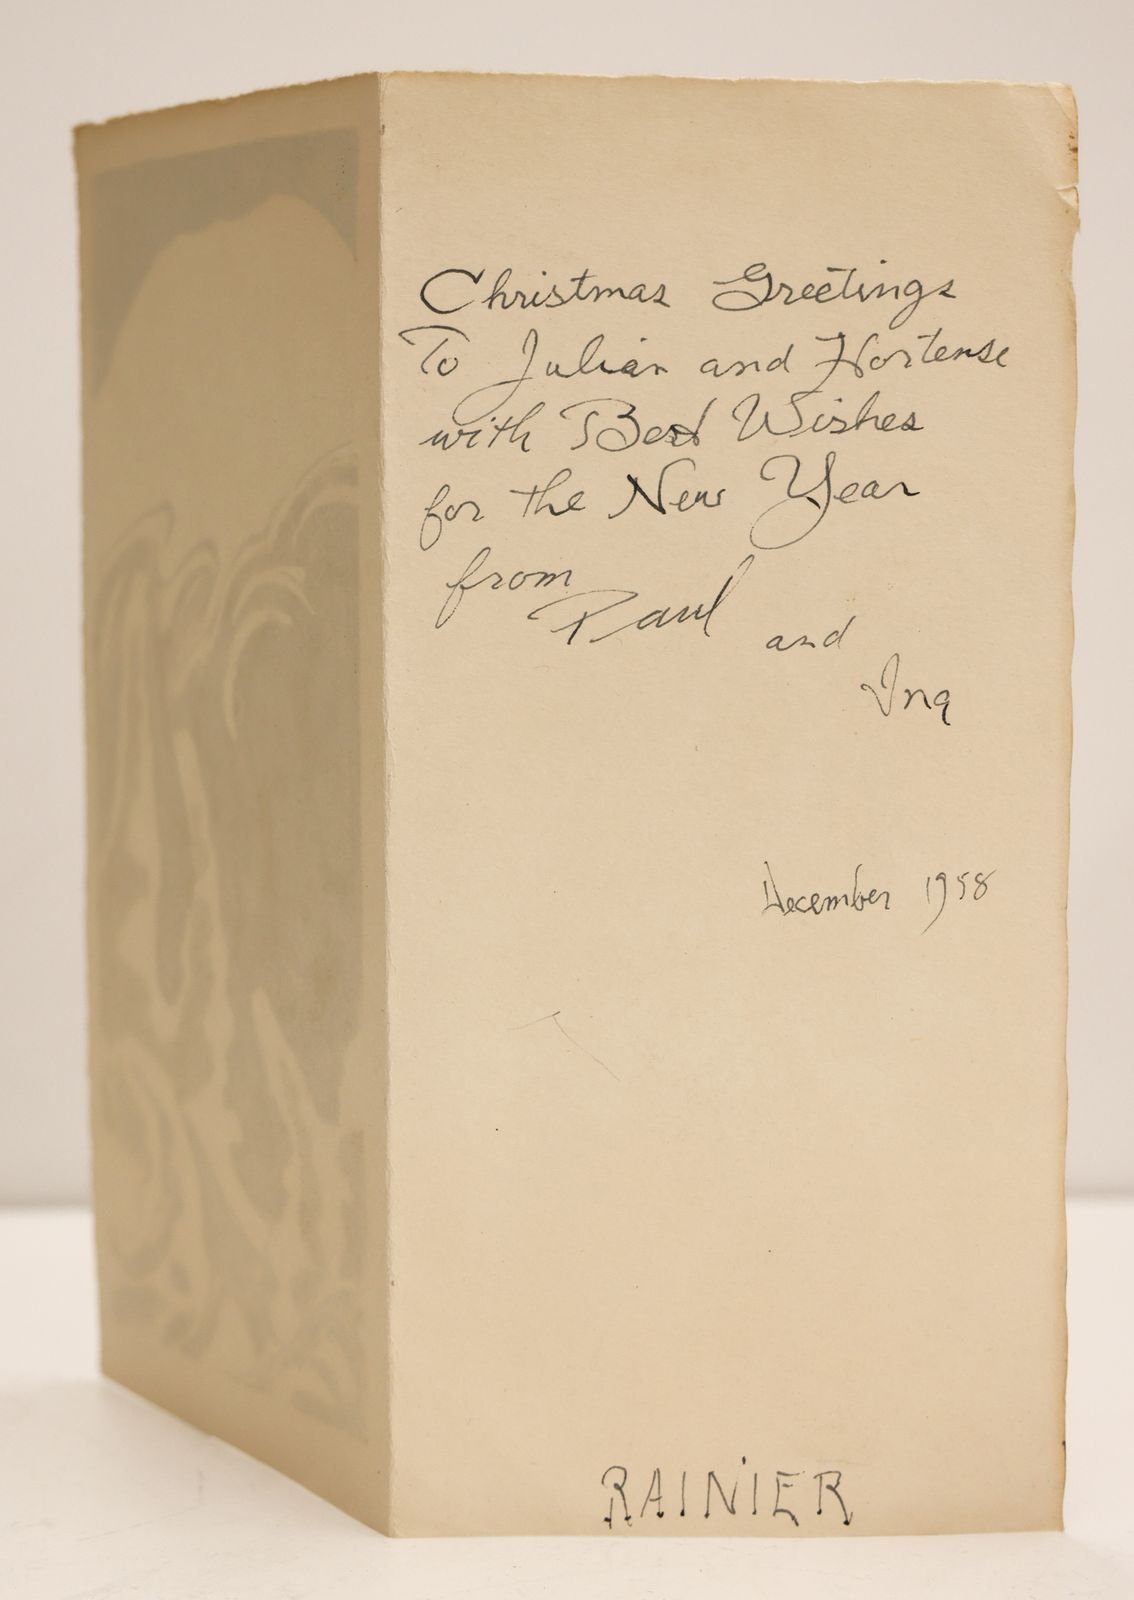 Christmas Greetings
To Julian and Hortense
with Best Wishes
for the New Year
from Paul and Ina
December 1958
RAINIER